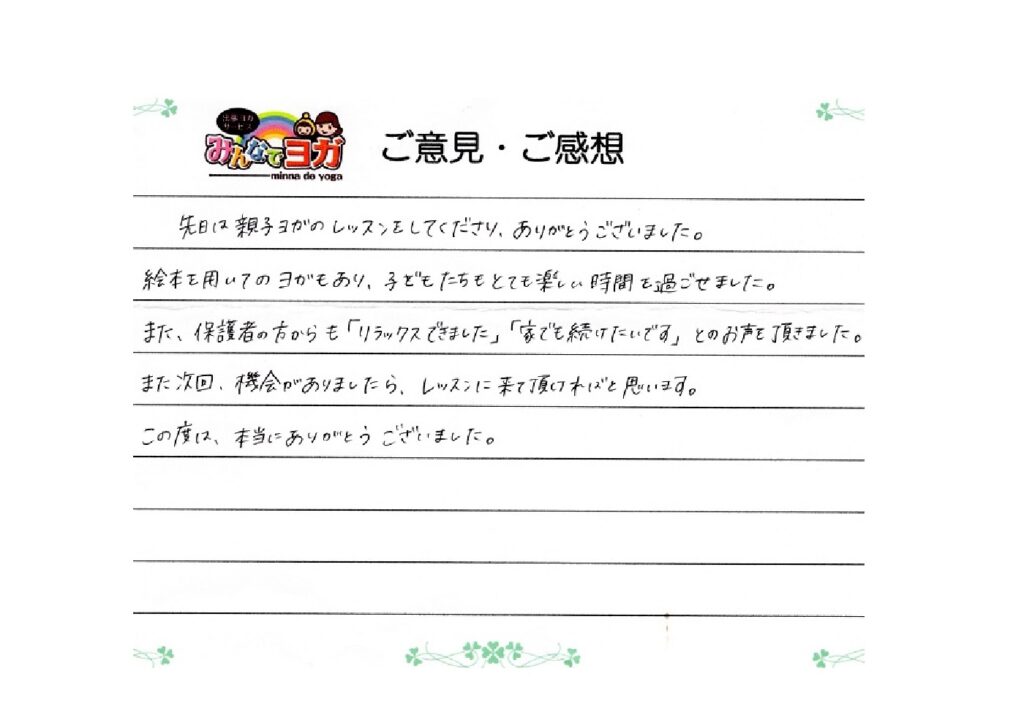 出張ヨガ
サービス
みんなでヨガ
minna de yoga
ご意見・ご感想
先日は親子ヨガのレッスンをしてくださり、ありがとうございました。
絵本を用いてのヨガもあり、子どもたちもとても楽しい時間を過ごせました。
また、保護者の方からも「リラックスできました」「家でも続けたいです」とのお声を頂きました。
また次回、機会がありましたら、レッスンに来て頂ければと思います。
この度は、本当にありがとうございました。